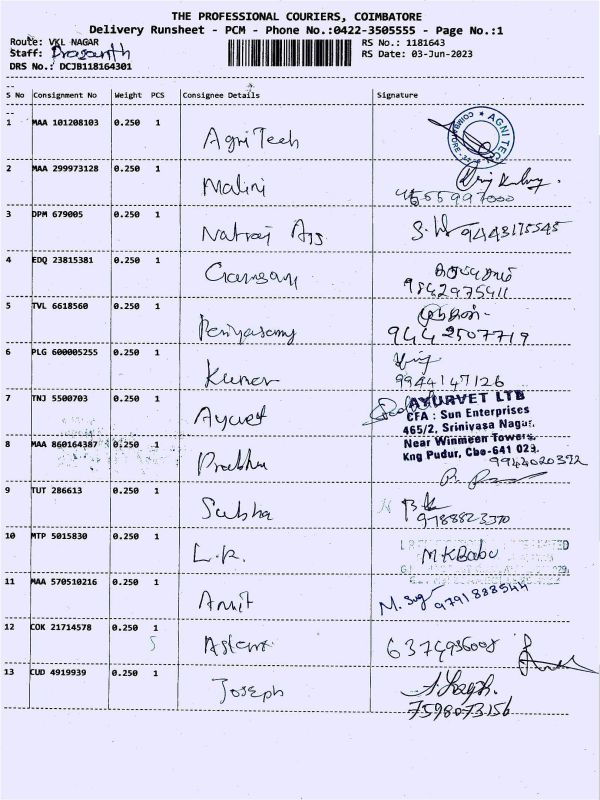 THE PROFESSIONAL COURIERS, COIMBATORE
Delivery Runsheet - PCM - Phone No.:0422-3505555 - Page No.:1
Route: VKL NAGAR
RS No.: 1181643
Staff: Prasanth
RS Date: 03-Jun-2023
DRS No.: DCJB118164301
S No Consignment No Weight PCS Consignee Details Signature
1 MAA 101208103 0.250 1 Agni Tech
AGNI TEC COIMBATORE-35
2 MAA 299973128 0.250 1 Malini
3 DPM 679005 0.250 1 Natraj Ass S. 9443175545
4 EDQ 23815381 0.250 1
9842975411
5 TVL 6618560 0.250 1 Periyasamy
9442507719
6 PLG 600005255 0.250 1 Kumar
9944147126
7 TNJ 5500703 0.250 1 Ayuvet
AYURVET LTD
CFA : Sun Enterprises
465/2, Srinivasa Nagar,
Near Winmeen Towers,
Kng Pudur, Cbe-641 029.
8 MAA 860164387 0.250 1 Prabhu
9944020392
9 TUT 286613 0.250 1 Subha
9788823370
10 MTP 5015830 0.250 1 L.R. M K Babu
11 MAA 570510216 0.250 1 Amit
9791888544
12 COK 21714578 0.250 1
5
13 CUD 4919939 0.250 1 Joseph
7598073156